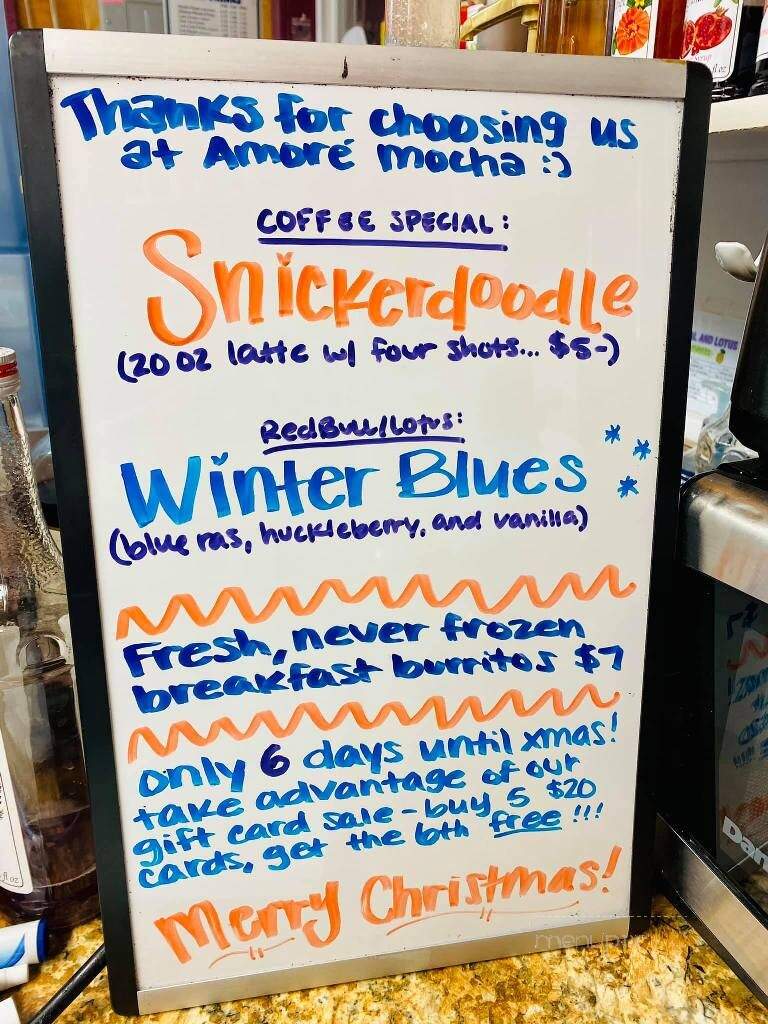 Thanks for choosing us
at Amoré mocha :)
COFFEE SPECIAL:
Snickerdoodle
(20 oz latte w/ four shots... $5-)
RedBull/Lotus:
Winter Blues
(blue ras, huckleberry, and vanilla)
Fresh, never frozen
breakfast burritos $7
only 6 days until xmas!
take advantage of our
gift card sale - buy 5 $20
cards, get the 6th free !!!
Merry Christmas!
AND LOTUS
Dan
fl oz
fl oz